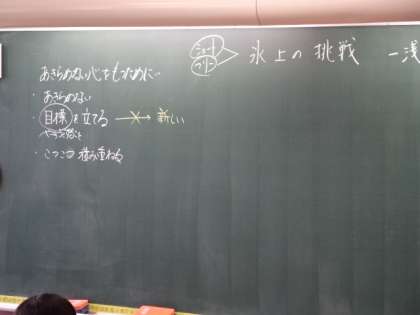 ショート
フリー
氷上の挑戦 一浅
あきらめない心をもつために…
・あきらめない
・目標を立てる → 新しい
・こつこつ積み重ねる